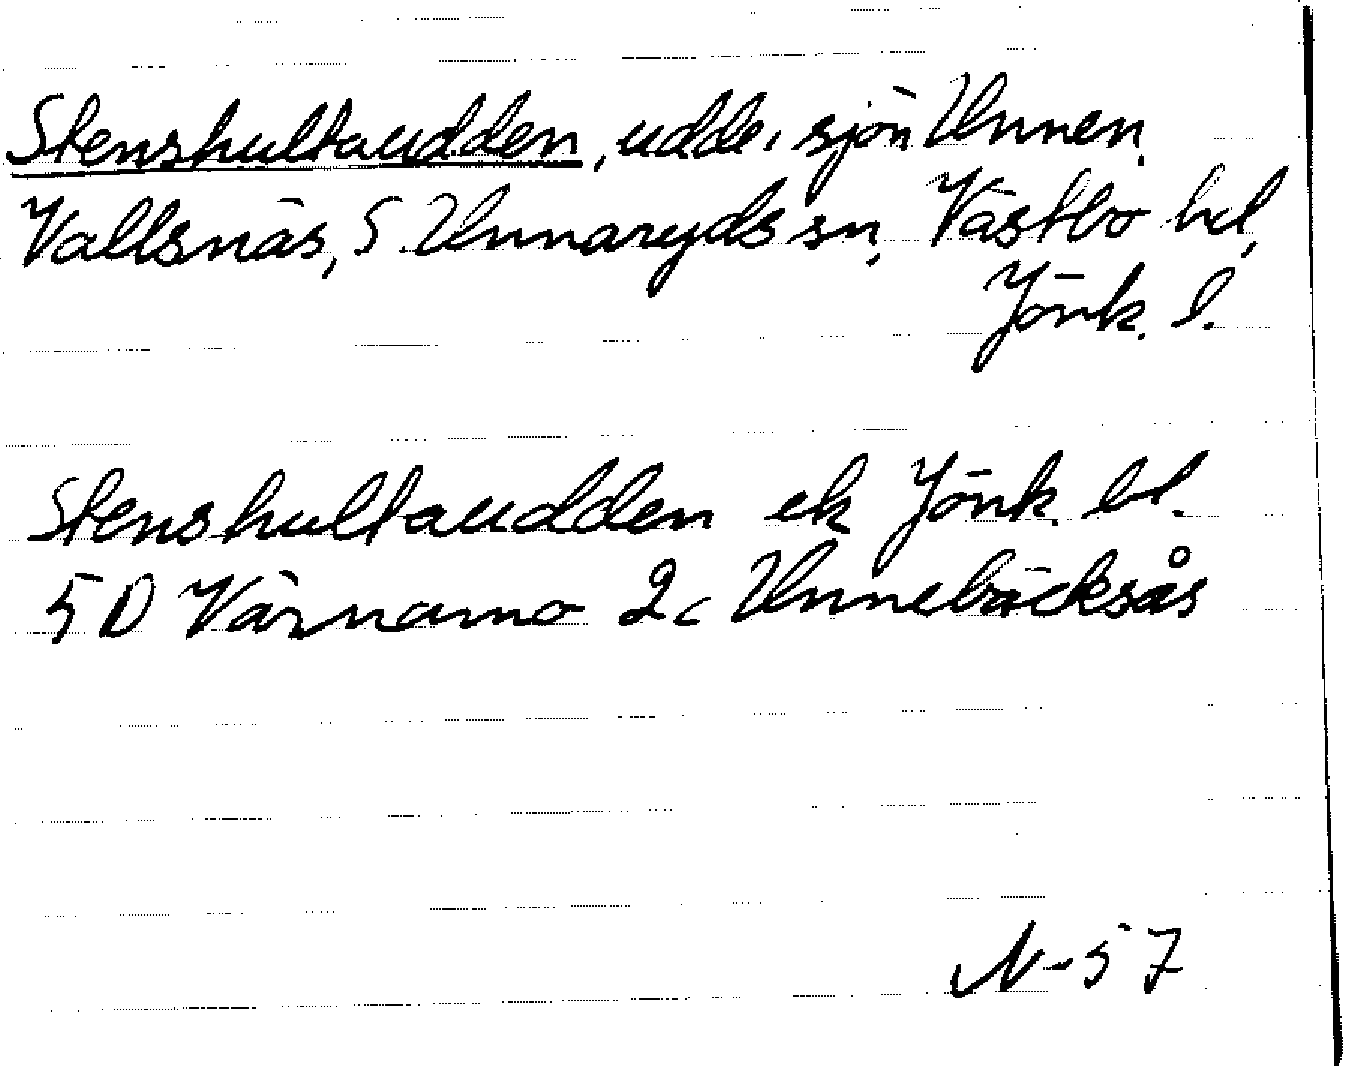 Stenshultaudden, udde i sjön Unnen,
Vallsnäs, S. Unnaryds sn, Västbo hd,
Jönk. l.
Stenshultaudden ek Jönk. bl.
5 D Värnamo 2c Unnebäcksås
N-57